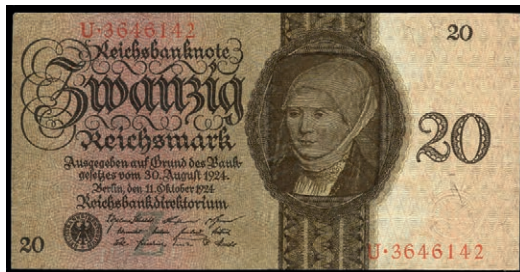 U·3646142
20
Reichsbanknote
Zwanzig
Reichsmark
20
Ausgegeben auf Grund des Bank-
gesetzes vom 30. August 1924.
Berlin, den 11. Oktober 1924
Reichsbankdirektorium
20
U·3646142